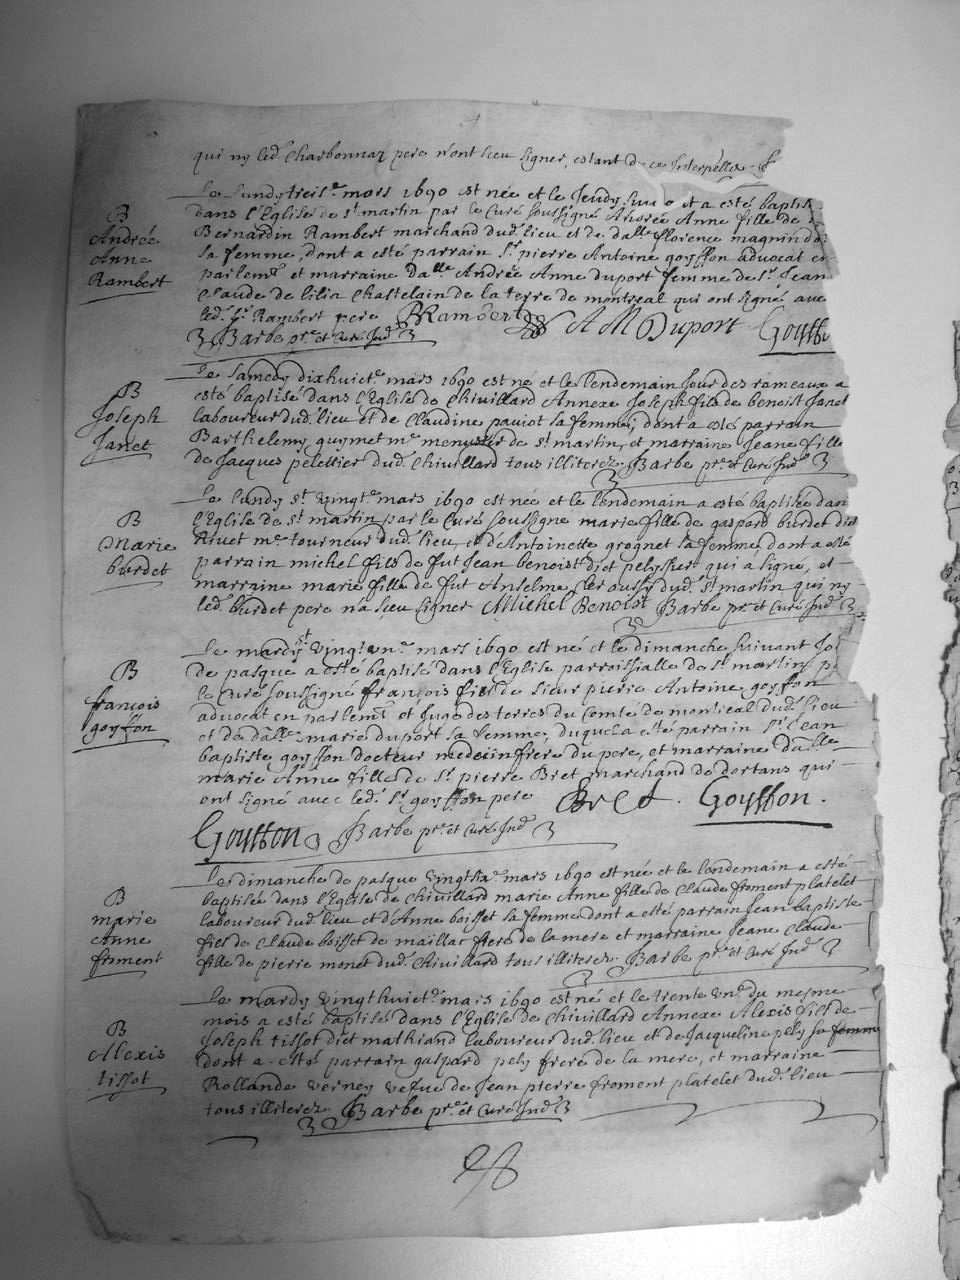 qui ny led. Charbonnaz pere n'ont sceu signer, estant de ce Interpellez
Le Lundy treise mars 1690 est née et le Jeudy suiv a esté baptis
B
Andrée
Anne
Rambert
dans l'Eglise de st martin par le Curé soussigné Andrée Anne fille de
Bernardin Rambert marchand dud. lieu et de dalle florence magnin
sa femme, dont a esté parrain Sr. pierre Antoine goyffon advocat en
parlemt et marraine dalle Andrée Anne duport femme de Sr. Jean
Claude de lilia Chastelain de la terre de montreal qui ont signé avec
led. Sr. Rambert pere BRambert AMDuport Goyffo
Barbe pre. et Curé Ind.
Le Samedy dixhuicte mars 1690 est né et le lendemain jour des rameaux a
B
Joseph
Janet
esté baptisé dans l'Eglise de Chivillard Annexe Joseph fils de benoist Janet
laboureur dud. lieu et de Claudine paviot sa femme, dont a esté parrain
Barthelemy guymet me menusier de st martin, et marraine Jeane fille
de Jacques peletier dud. Chivillard tous illiterez Barbe pre. et Curé Ind.
Le lundy st vingte mars 1690 est née et le lendemain a esté baptisée dan
B
Marie
burdet
l'Eglise de st martin par le Curé soussigné marie fille de gaspard burdet dit
Rivet me tourneur dud. lieu, et d'Antoinette grognet sa femme dont a esté
parrain michel fils de fut Jean benoist dict pelyssier qui a signé, et
marraine marie fille de fut Anselme dud. st martin qui ny
led. burdet pere n'a sceu signer Michel Benoist Barbe pre. et Curé Ind.
Le mardy st vingt un. mars 1690 est né et le dimanche suivant Jo
B
françois
goyffon
de pasque a esté baptisé dans l'Eglise parroissialle de st martin p
le Curé soussigné françois fils de sieur pierre Antoine goyffon
advocat en parlemt et juge des terres du Comté de montreal dud. lieu
et de dalle marie duport sa femme, duquel a esté parrain Sr. Jean
baptiste goyffon docteur medecin frere du pere, et marraine dalle
marie Anne fille de Sr. pierre Bret marchand de dortans qui
ont signé avec led. Sr. goyffon pere Bret. Goyffon.
Goyffon Barbe pre. et Curé Ind.
Le dimanche de pasque vingtsixe mars 1690 est née et le lendemain a esté
B
marie
Anne
froment
baptisée dans l'Eglise de Chivillard marie Anne fille de Claude froment platelet
laboureur dud. lieu et d'Anne boisset sa femme dont a esté parrain Jean baptiste
fils de Claude boisset de maillac frere de la mere et marraine Jeane Claude
fille de pierre monet dud. Chivillard tous illiterez Barbe pre. et Curé Ind.
Le mardy vingthuicte. mars 1690 est né et le trente un. du mesme
B
Alexis
tissot
mois a esté baptisé dans l'Eglise de Chivillard Annexe Alexis fils de
Joseph tissot dict mathiand laboureur dud. lieu et de Jacqueline pely sa femme
dont a esté parrain gaspard pely frere de la mere, et marraine
Rollande verney vefue de Jean pierre froment platelet dud. lieu
tous illiterez Barbe pre. et Curé Ind.